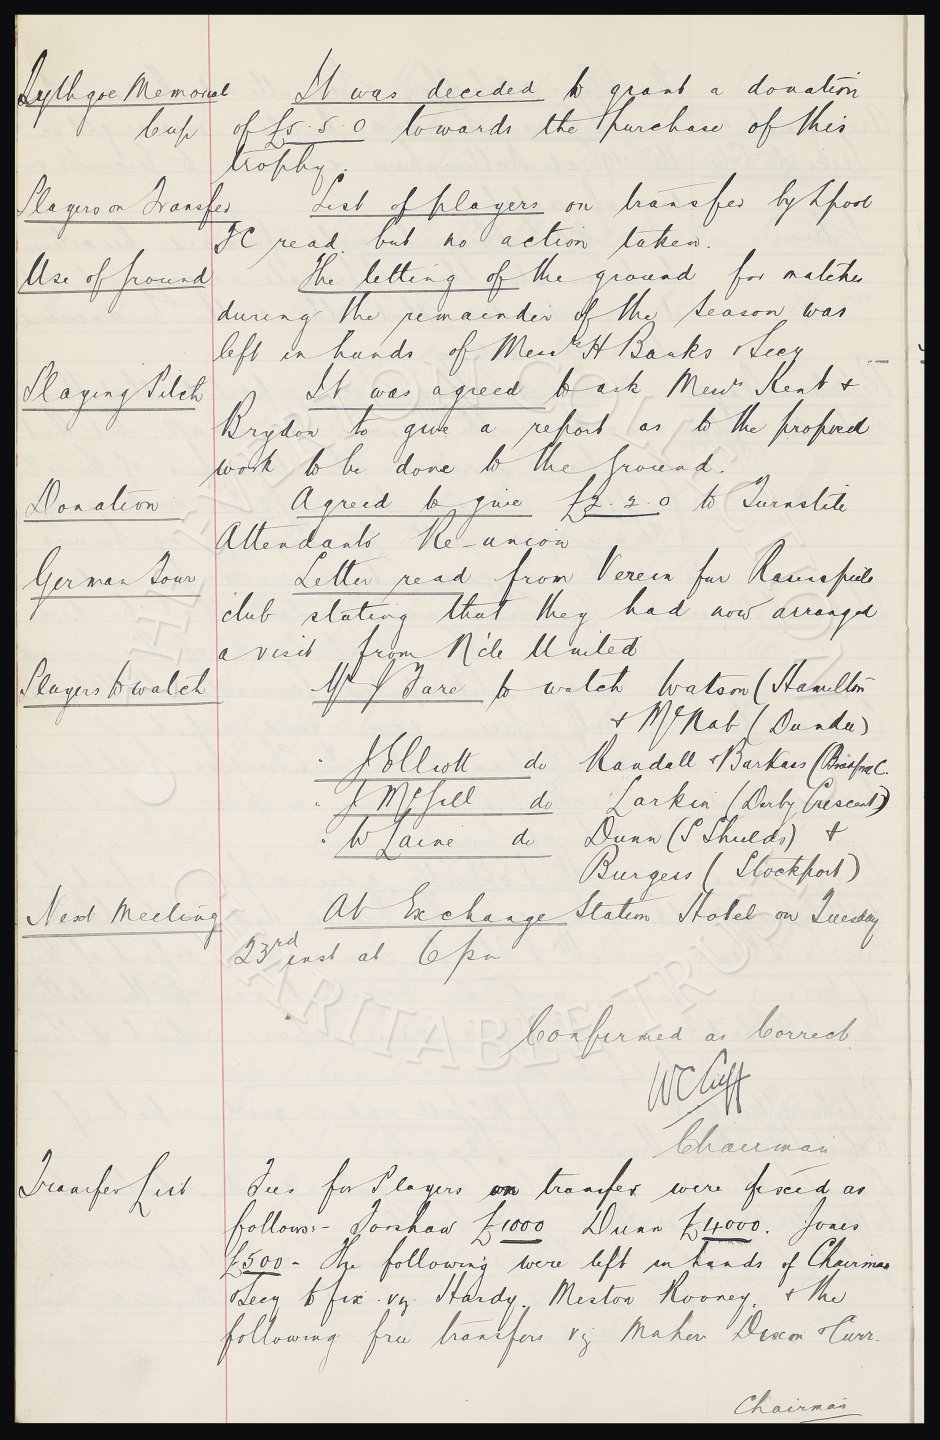 Lythgoe Memorial It was decided to grant a donation
Cup of £5.5.0 towards the purchase of this
trophy.
Players on Transfer List of players on transfer by Lpool
FC read but no action taken.
Use of ground The letting of the ground for matches
during the remainder of the season was
left in hands of Messrs H Banks & Secy
Playing Pitch It was agreed to ask Messrs Kent &
Brydon to give a report as to the proposed
work to be done to the ground.
Donation Agreed to give £2.2.0 to Turnstile
Attendants Re-union
German Tour Letter read from Verein fur Rasenspiele
club stating that they had now arranged
a visit from N'cle United
Players to watch Mr J Fare to watch Watson (Hamilton
& McNab (Dundee)
" J Elliott do Randall & Barkass (
" J McGill do Larkin (Derby Crescent)
" W Laine do Dunn (S Shields) &
Burgess (Stockport)
Next Meeting At Exchange Station Hotel on Tuesday
23rd inst at 6 pm
Confirmed as Correct
WC Cuff
Chairman
Transfer List Fees for Players on transfer were fixed as
follows:- Forshaw £1000 Dunn £4000. Jones
£500 - The following were left in hands of Chairman
& Secy to fix viz. Hardy, Meston Rooney, & the
following free transfers viz Maher Dixon & Curr.
Chairman
CHARITABLE TRUST